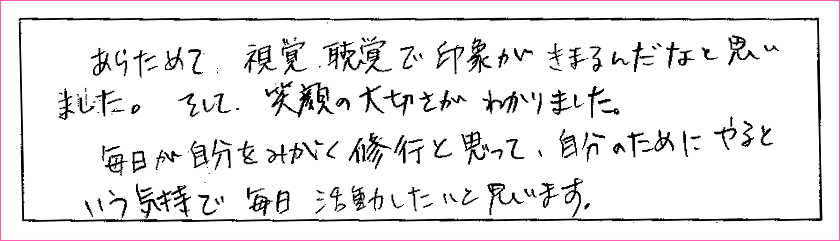 あらためて、視覚、聴覚で印象がきまるんだなと思い
ました。そして、笑顔の大切さがわかりました。
毎日が自分をみがく修行と思って、自分のためにやると
いう気持で毎日活動したいと思います。